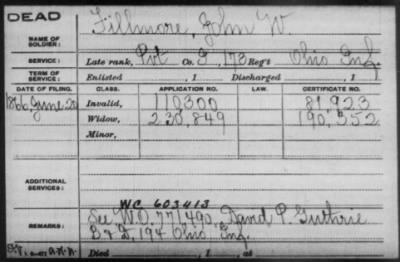 DEAD
NAME OF SOLDIER: Fillmore, John W.
SERVICE: Late rank, Pvt Co. I, 173 Reg't Ohio Inf.
TERM OF SERVICE: Enlisted , 1 Discharged , 1
DATE OF FILING. CLASS. APPLICATION NO. LAW. CERTIFICATE NO.
1866 June 20 Invalid, 110300 81,923
Widow, 230,849 190,352
Minor,
ADDITIONAL SERVICES:
WC 603413
REMARKS: See W.O. 771490, David P. Guthrie
194 Ohio Inf.
Died , 1 at